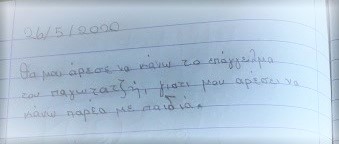 26/5/2020
Θα μου άρεσε να κάνω το επάγγελμα
του παγωτατζή, γιατί μου αρέσει να
κάνω παρέα με παιδιά.